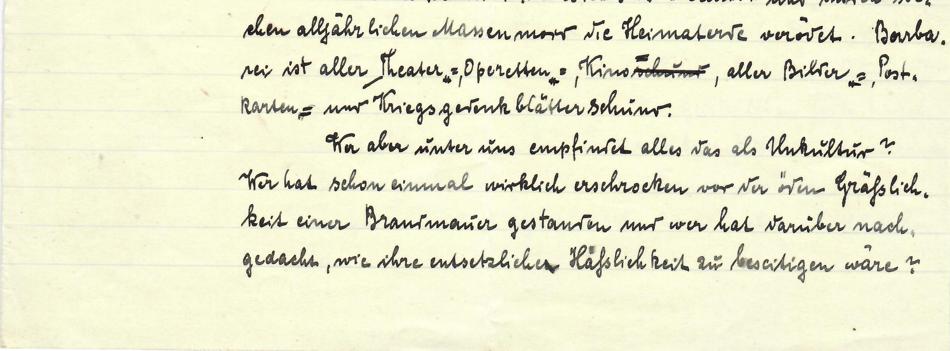 chen alljährlichen Massenmord die Heimaterde verödet. Barba-
rei ist aller Theater=, Operetten=, Kino=, aller Bilder=, Post-
karten= und Kriegsgedenkblätterschund.
Wer aber unter uns empfindet alles das als Unkultur?
Wer hat schon einmal wirklich erschrocken vor der öden Gräßlich-
keit einer Brandmauer gestanden und wer hat darüber nach-
gedacht, wie ihre entsetzlichen Häßlichkeit zu beseitigen wäre?